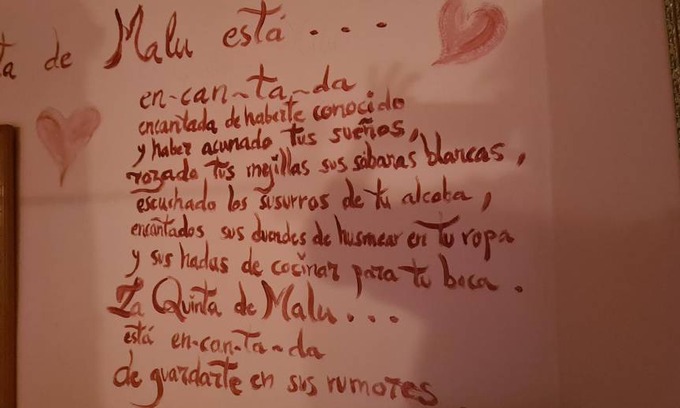 ta de Malu está . . . .
en-can-ta-da
encantada de haberte conocido
y haber acunado tus sueños,
rozado tus mejillas sus sábanas blancas,
escuchado los susurros de tu alcoba,
encantados sus duendes de husmear en tu ropa
y sus hadas de cocinar para tu boca.
La Quinta de Malu...
está en-can-ta-da
de guardarte en sus rumores